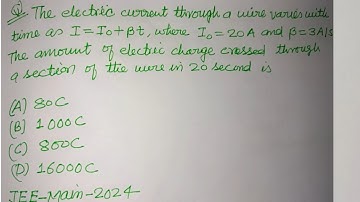 Q) The electric current through a wire varies with
time as I = I₀ + βt, where I₀ = 20A and β = 3A/s
The amount of electric charge crossed through
a section of the wire in 20 second is
(A) 80C
(B) 1000C
(C) 800C
(D) 16000C
JEE-Main-2024